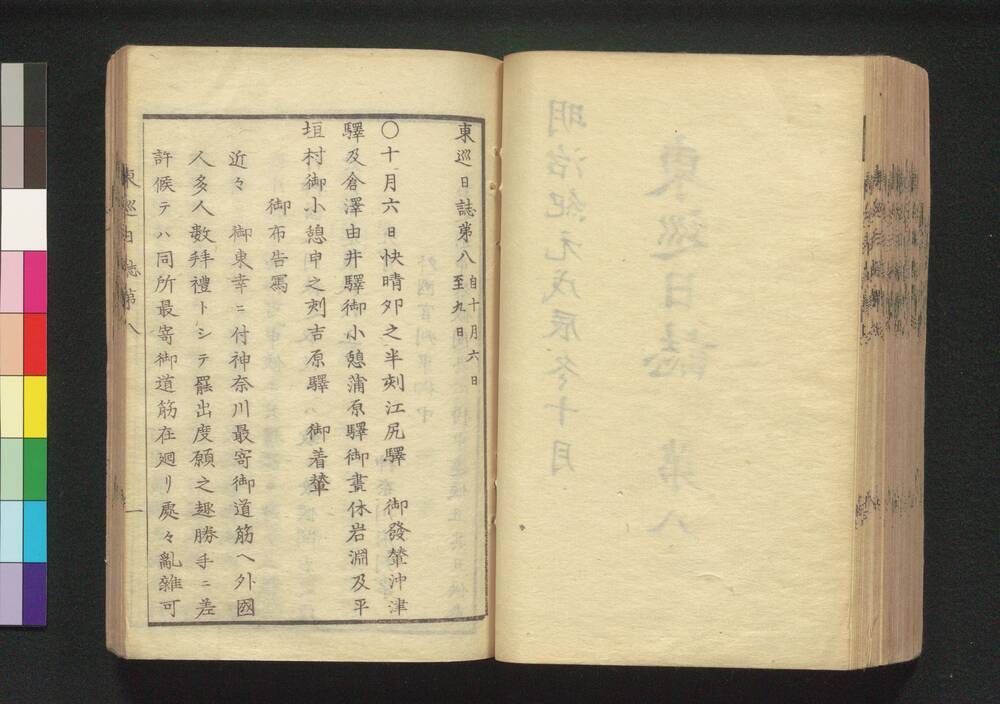 東巡日誌第八 自十月六日至九日
〇十月六日快晴夘之半刻江尻驛 御發輦沖津
驛及倉澤由井驛御小憩蒲原驛御晝休岩淵及平
垣村御小憩申之刻吉原驛 御着輦
御布告寫
近々 御東幸ニ付神奈川最寄御道筋ヘ外國
人多人数拜禮トシテ罷出度願之趣勝手ニ差
許候テハ同所最寄御道筋在廻リ處々亂雜可
東巡日誌第八
一